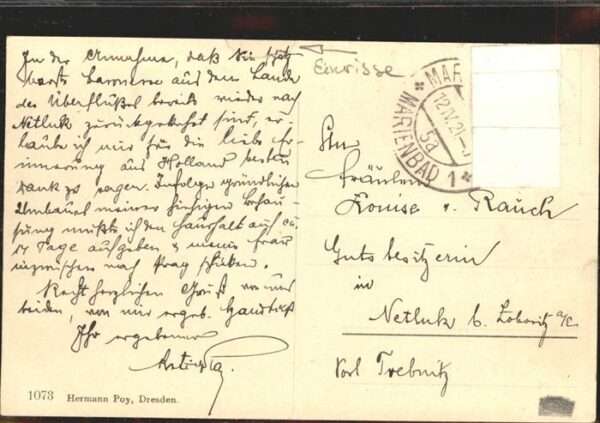 In der Annahme, daß Sie
Baronesse aus dem Lande
des Überflußes bereits wieder nach
Netluk zurückgekehrt sind, er-
laube ich mir für die liebe Er-
innerung aus Holland besten
Dank zu sagen. Infolge gründlichen
Umbaues meiner hiesigen Behau-
sung mußte ich den Haushalt auf
14 Tage aufgeben & meine Frau
inzwischen nach Prag schicken.
Recht herzlichen Gruß von uns
beiden, von mir ergeb. Handkuß
Ihr ergebener
1073 Hermann Poy, Dresden.
Einrisse
MAR
MARIENBAD 1
12.IV.21
5a
Fräulein
Louise v. Rauch
Gutsbesitzerin
in
Netluk b. Lobositz a/E.
Post Trebnitz